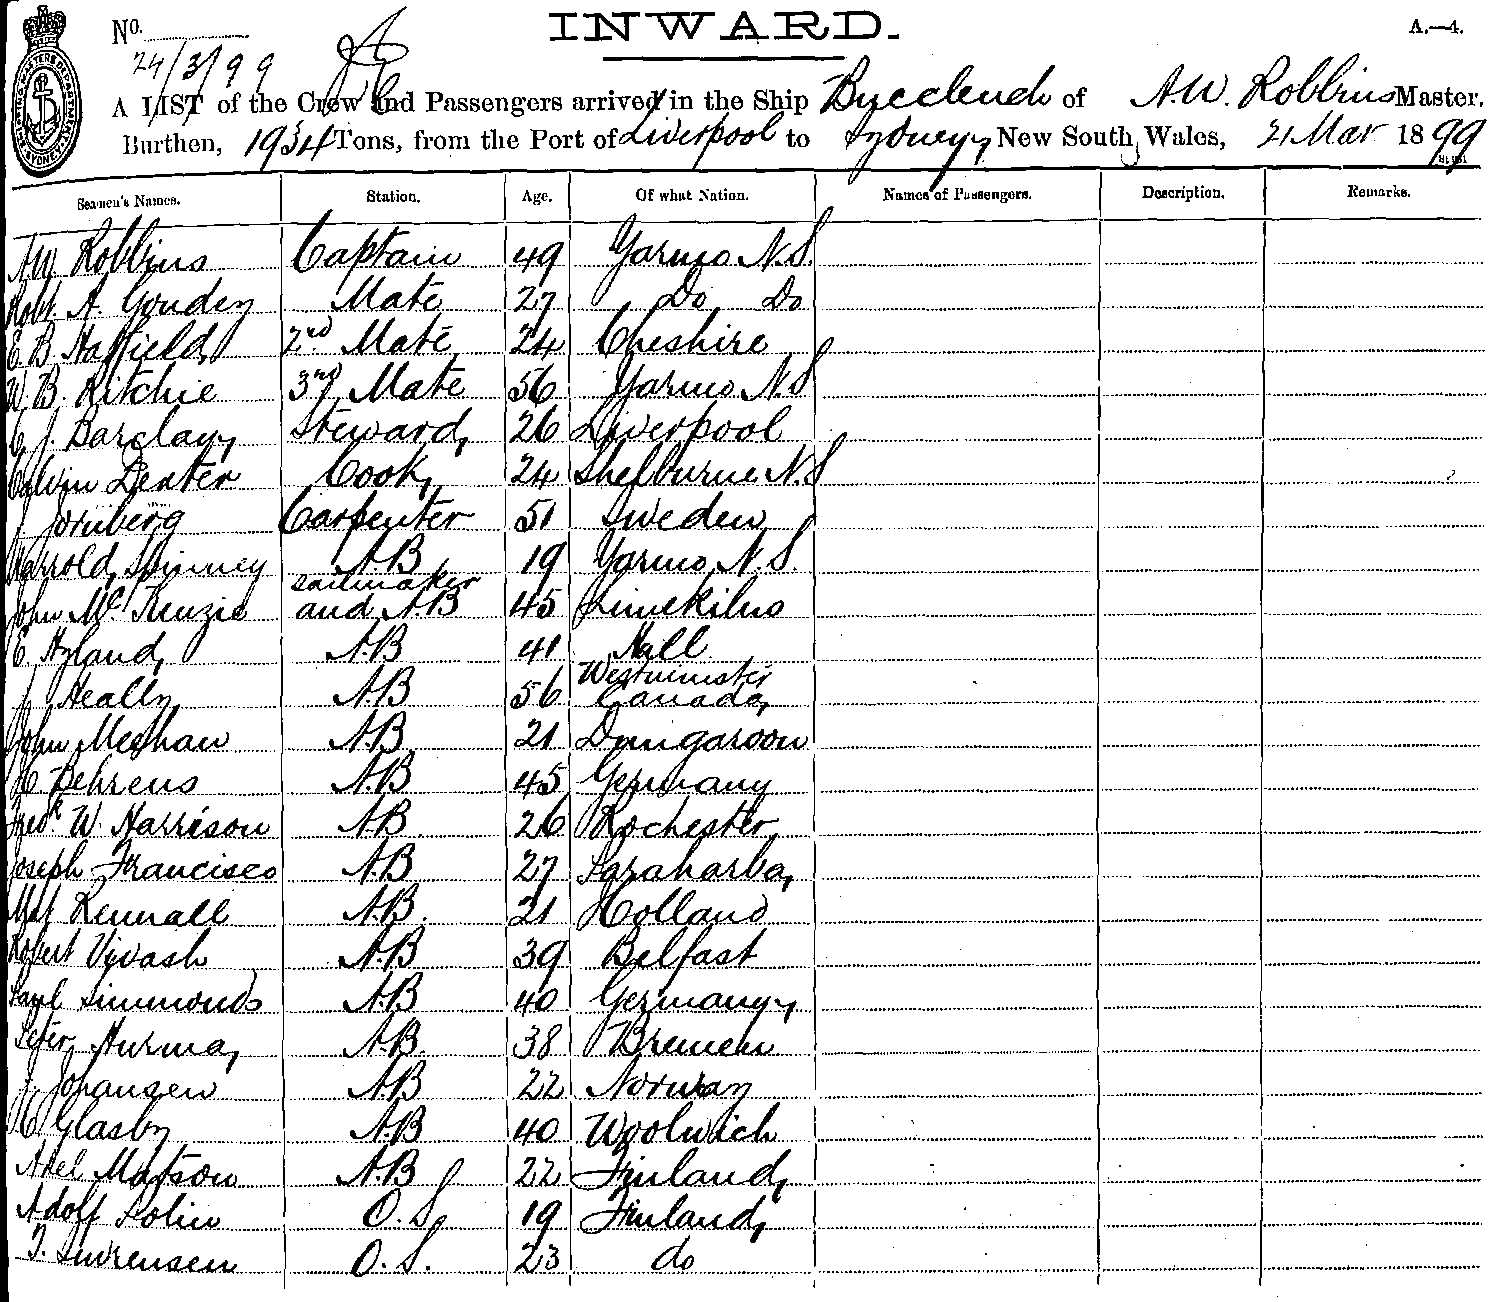 No.
INWARD.
A.—4.
24/3/99
A LIST of the Crew and Passengers arrived in the Ship Buccleuch of A.W. Robbins Master,
Burthen, 1934 Tons, from the Port of Liverpool to Sydney, New South Wales, 21 Mar 1899
Seamen's Names. Station. Age. Of what Nation. Names of Passengers. Description. Remarks.
A.W. Robbins Captain 49 Yarmo N.S.
Robt. A. Goudey Mate 27 Do Do
E. B. Hatfield 2nd Mate 24 Cheshire
W. B. Ritchie 3rd Mate 56 Yarmo N.S
J. Barclay Steward 26 Liverpool
Calvin Dexter Cook 24 Shelburne N.S
J. Tornberg Carpenter 51 Sweden
Harrold Spinney A.B 19 Yarmo N.S.
sailmaker
John McKenzie and A.B 45 Limekilns
E. Hyland A.B 41 Hull
Westminster
J. Healy A.B 56 Canada
John Meghan A.B. 21 Dungarvon
H. Behrens A.B 45 Germany
Fredk W. Harrison A.B. 26 Rochester
Joseph Francisco A.B 27
Kennall A.B. 21 Holland
Robert Vivash A.B 39 Belfast
Simmonds A.B 40 Germany
Peter Hurma A.B. 38 Bremen
J. Johansen A.B 22 Norway
Glasby A.B 40 Woolwich
Axel Matson A.B 22 Finland
Adolf Solin O.S. 19 Finland
T. Swrensen O.S. 23 do